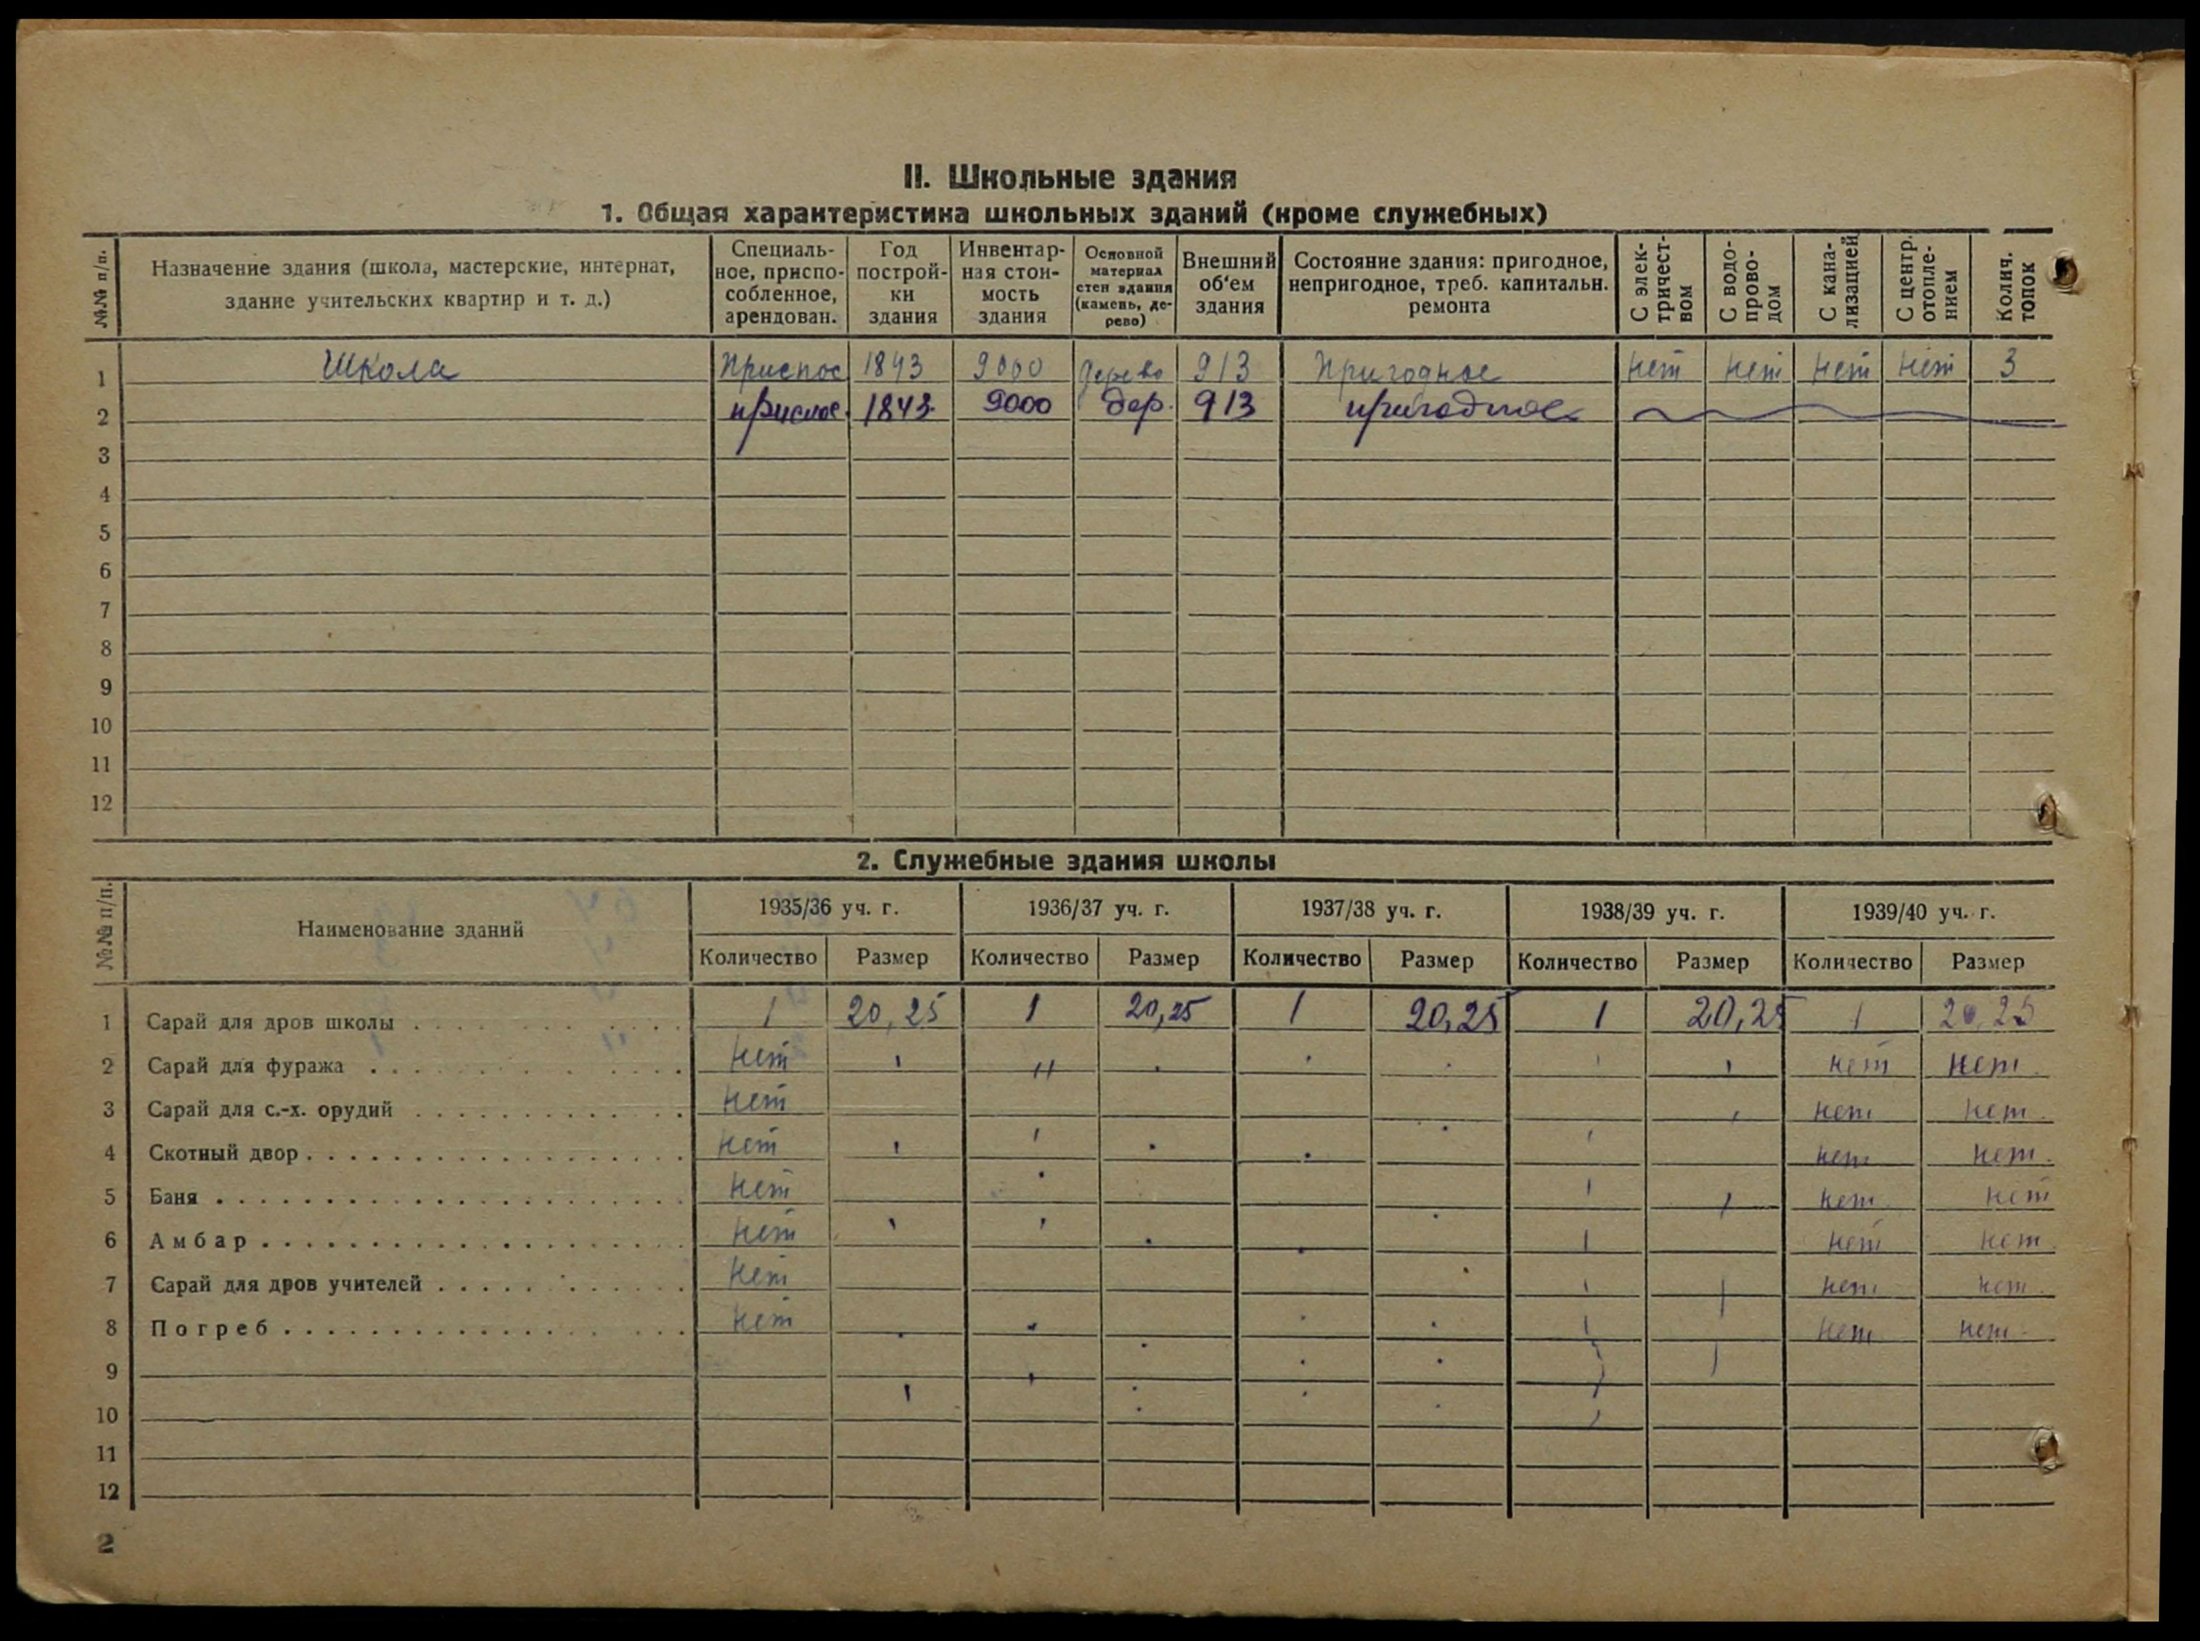 II. Школьные здания
1. Общая характеристика школьных зданий (кроме служебных)
№№ п/п. Назначение здания (школа, мастерские, интернат, здание учительских квартир и т. д.) Специаль-ное, приспо-собленное, арендован. Год построй-ки здания Инвентар-ная стои-мость здания Основной материал стен здания (камень, де-рево) Внешний об‘ем здания Состояние здания: пригодное, непригодное, треб. капитальн. ремонта С элек-тричест-вом С водо-прово-дом С кана-лизацией С центр. отопле-нием Колич. топок
1 Школа Приспос 1843 9000 дерево 913 Пригодное нет нет нет нет 3
2 приспос. 1843 9000 дер. 913 пригодное
3
4
5
6
7
8
9
10
11
12
2. Служебные здания школы
№№ п/п. Наименование зданий 1935/36 уч. г. 1936/37 уч. г. 1937/38 уч. г. 1938/39 уч. г. 1939/40 уч. г.
Количество Размер Количество Размер Количество Размер Количество Размер Количество Размер
1 Сарай для дров школы 1 20,25 1 20,25 1 20,25 1 20,25 1 20,25
2 Сарай для фуража нет " нет нет.
3 Сарай для с.-х. орудий нет нет нет.
4 Скотный двор нет нет нет.
5 Баня нет нет нет
6 Амбар нет нет нет.
7 Сарай для дров учителей нет нет нет.
8 Погреб нет нет нет.
9
10
11
12
2